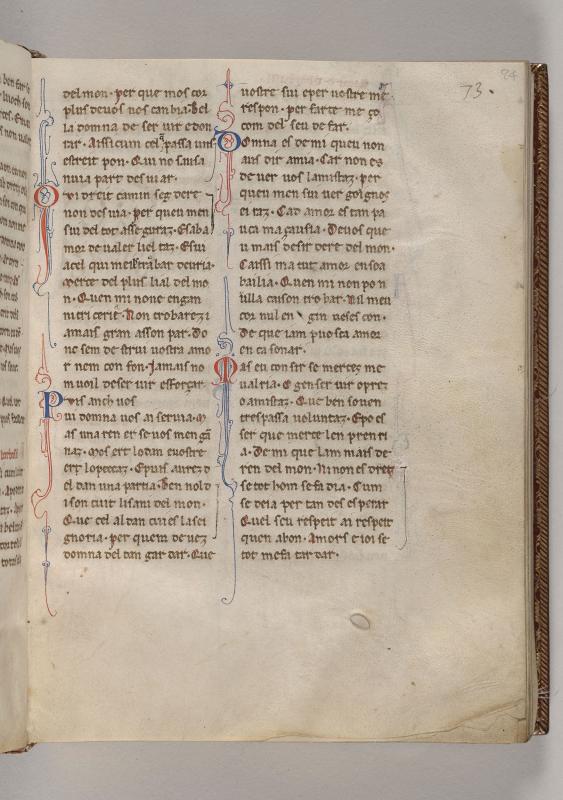 73.
24
del mon· per que mos cor
plus de uos nos cambia· Bel
la domna de ser uir e don
rar· Aissi cum cel q̃ passa uns
estreit pon· Qui no sauisa
nuia part des uiar·
Qui dreit camin seg dere
non des uia· per queu men
sui del tot asseguraz· Esaba
mor de ualer liel taz· Esiu
acel qui mesbrabar deuria·
merce del plus lial del mo
n· Quen mi none engan
ni tricerie· Non trobarezi
amais gran asson par· Do
nc sem de strui uostra amo
r nem con fon· Jamais no
m uoil deser uir esforçar·
Puis anch uos
ui domna uos ai seruia· Qu
as una ren er se uos men gã
naz· Mos ert lo dan euostre
ert lopeccaz· Epuis aurez d
el dan una partia· Ben nol d
ison tuit li saui del mon·
Que cel al tan cui es la sei
gnoria· per quem deuez
domna del dan gar dar· Que
uostre sui eper uostre me
respon· per far te me ço
com del seu de far·
Domna es de mi queu non
aus dir amia· Car non es
de uer uos lamistaz· per
queu men sui uer goignos
ei taz· Cad amor es tan pa
uca ma çausia· De uos que
u mais desir dere del mon·
Caissi ma tut amor en soa
bailia· Quen mi non po n
ulla caison tro bar· Nil meu
cor nul en gin ueses con·
De que iam puosca amor
en ca sonar·
Mas eu con sir se mercez me
ualria· O gen ser uir o prez
o amistaz· Que ben so uen
trespassa uoluntaz· Epo es
ser que merce len pren ri
a· De mi que lam mais de
ren del mon· Ni non es dreiz
se tot hom se fa dia· Cum
se deia per tan des es perar
Quel seu respeit ai respeit
quen abon· Amors e ioi se
tot me fa tar dar·